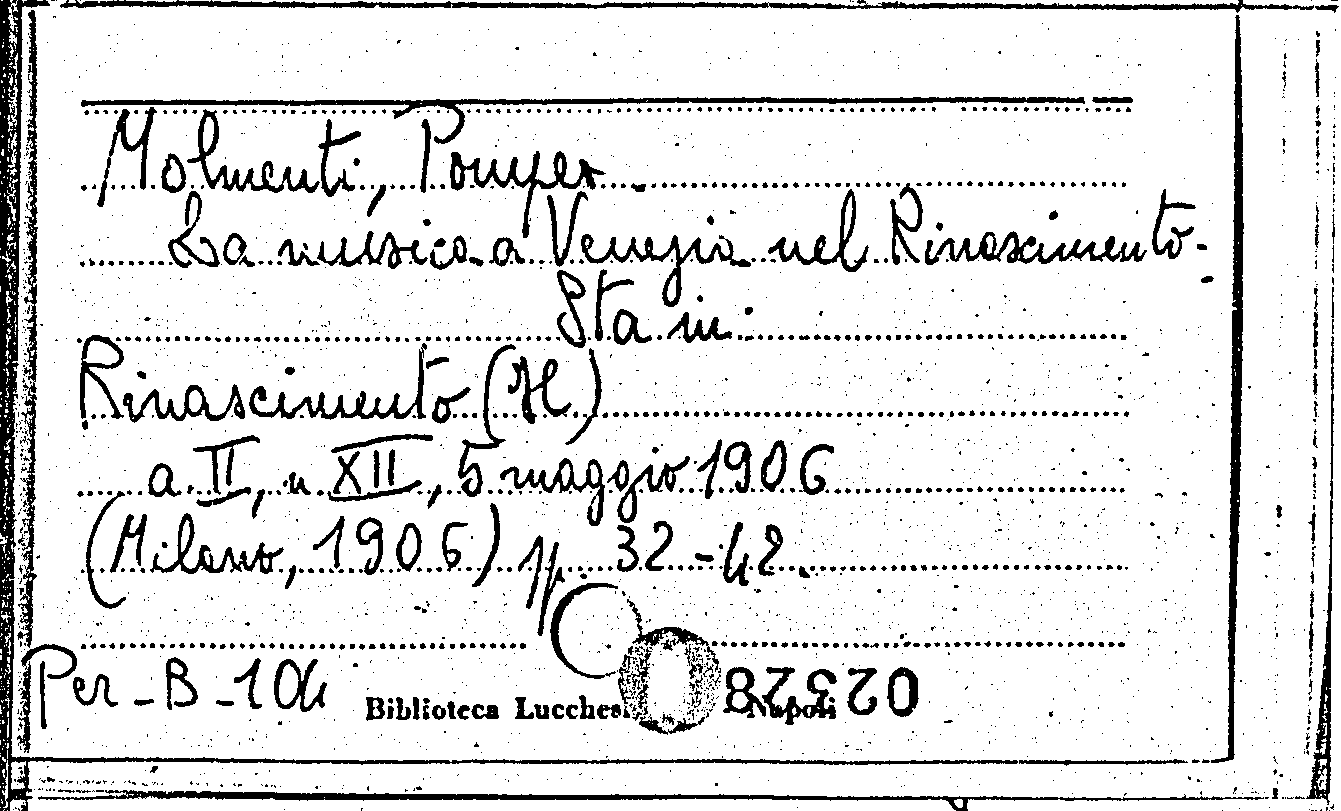 Molmenti, Pompeo.
La musica a Venezia nel Rinascimento.
Sta in:
Rinascimento (Il)
a. II, n XII, 5 maggio 1906
(Milano, 1906) pp. 32-42.
Per-B-104
Biblioteca Lucchesi Napoli